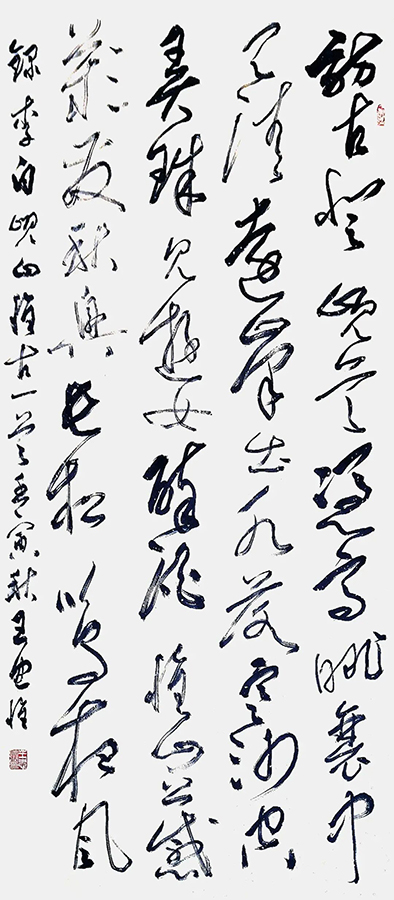 訪古登峴首憑高眺襄中
天清遠峰出水落寒沙空
弄珠見遊女醉酒懷山公感
嘆發秋興長松鳴夜風
錄李白峴山懷古一首壬寅秋王